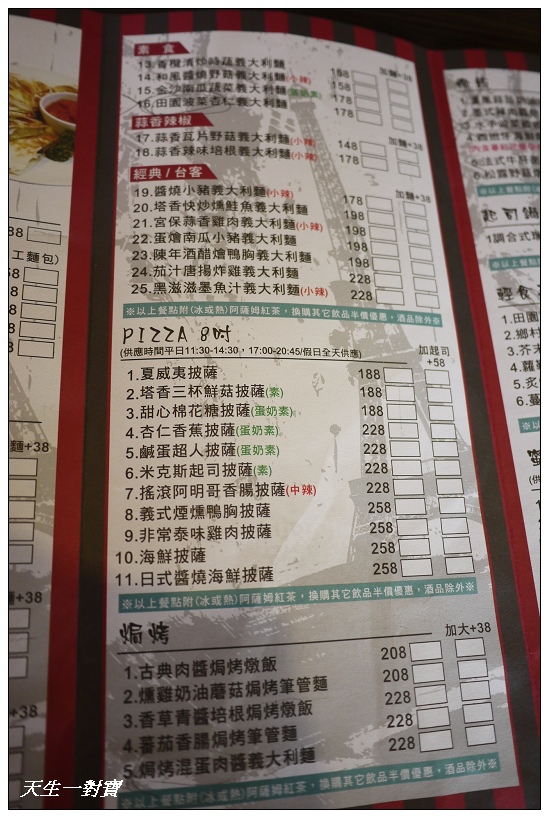 素 食
13.香橙清炒時蔬義大利麵 168 加麵+38
14.和風醬燒野菇義大利麵(小辣) 158
15.金沙南瓜蔬菜義大利麵(蛋奶素) 178
16.田園菠菜杏仁義大利麵 178
蒜香辣椒
17.蒜香瓦片野菇義大利麵(小辣) 148 加麵+38
18.蒜香辣味培根義大利麵(小辣) 178
經典/台客
19.醬燒小豬義大利麵(小辣) 178 加麵+38
20.塔香快炒燻鮭魚義大利麵 198
21.宮保蒜香雞肉義大利麵(小辣) 198
22.蛋燴南瓜小豬義大利麵 198
23.陳年酒醋燴鴨胸義大利麵 198
24.茄汁唐揚炸雞義大利麵 228
25.黑滋滋墨魚汁義大利麵(小辣) 228
※以上餐點附(冰或熱)阿薩姆紅茶，換購其它飲品半價優惠，酒品除外※
PIZZA 8吋
(供應時間平日11:30-14:30，17:00-20:45/假日全天供應)
加起司+58
1.夏威夷披薩 188
2.塔香三杯鮮菇披薩(素) 188
3.甜心棉花糖披薩(蛋奶素) 188
4.杏仁香蕉披薩(蛋奶素) 228
5.鹹蛋超人披薩(蛋奶素) 228
6.米克斯起司披薩(素) 228
7.搖滾阿明哥香腸披薩(中辣) 228
8.義式煙燻鴨胸披薩 258
9.非常泰味雞肉披薩 258
10.海鮮披薩 258
11.日式醬燒海鮮披薩 258
※以上餐點附(冰或熱)阿薩姆紅茶，換購其它飲品半價優惠，酒品除外※
焗烤
加大+38
1.古典肉醬焗烤燉飯 208
2.燻雞奶油蘑菇焗烤筆管麵 208
3.香草青醬培根焗烤燉飯 228
4.蕃茄香腸焗烤筆管麵 228
5.焗烤混蛋肉醬義大利麵 228
※以上餐點附(冰或熱)阿薩姆紅茶，換購其它飲品半價優惠，酒品除外※
工麵包)
麵+38
+38
+38
輕食
1.田園
2.鄉村
3.芥末
4.蘿
5.炙
6.蔓
天生一對寶